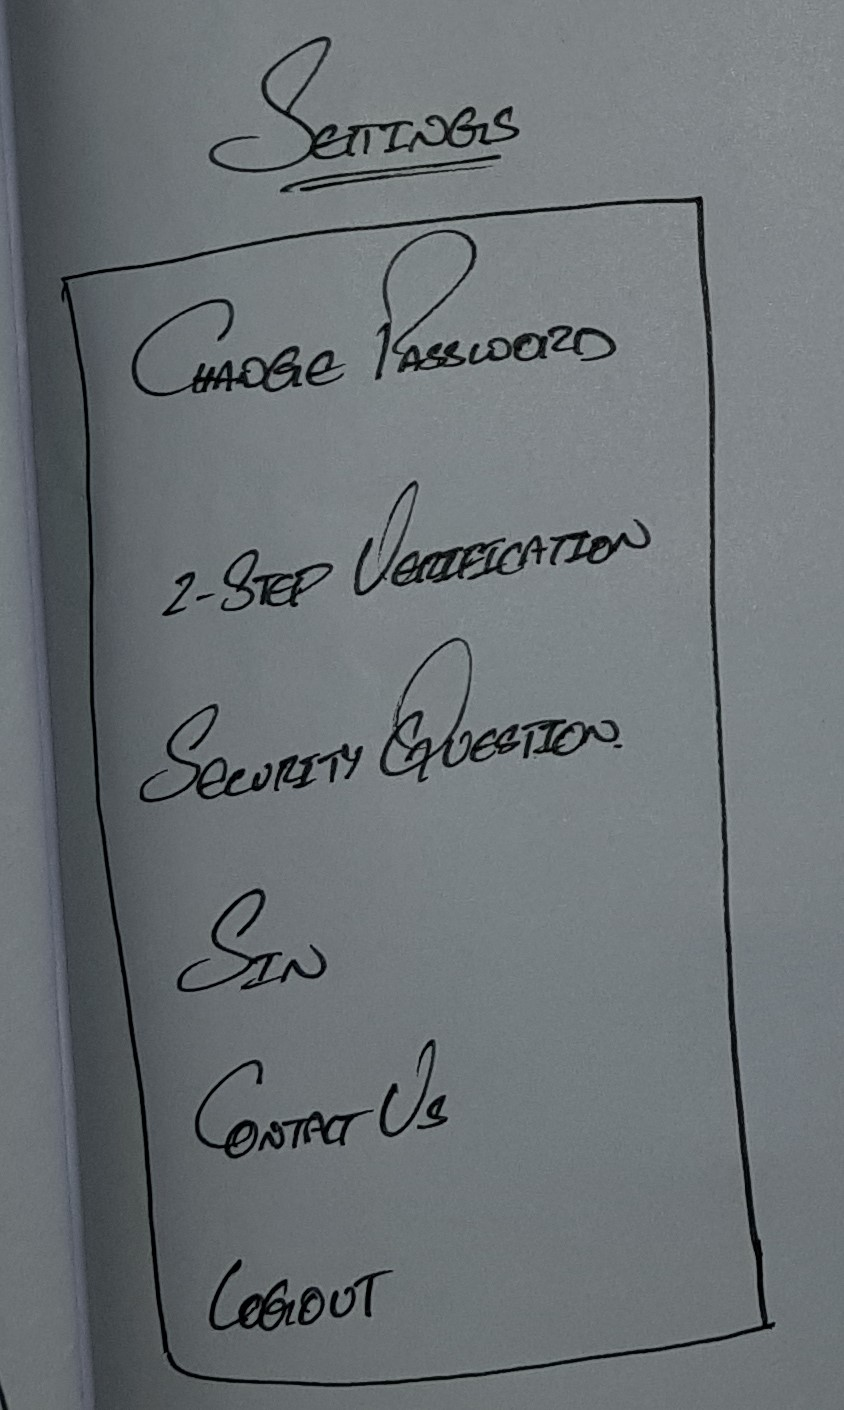 Settings
Change Password
2-Step Verification
Security Question.
Sin
Contact Us
Logout